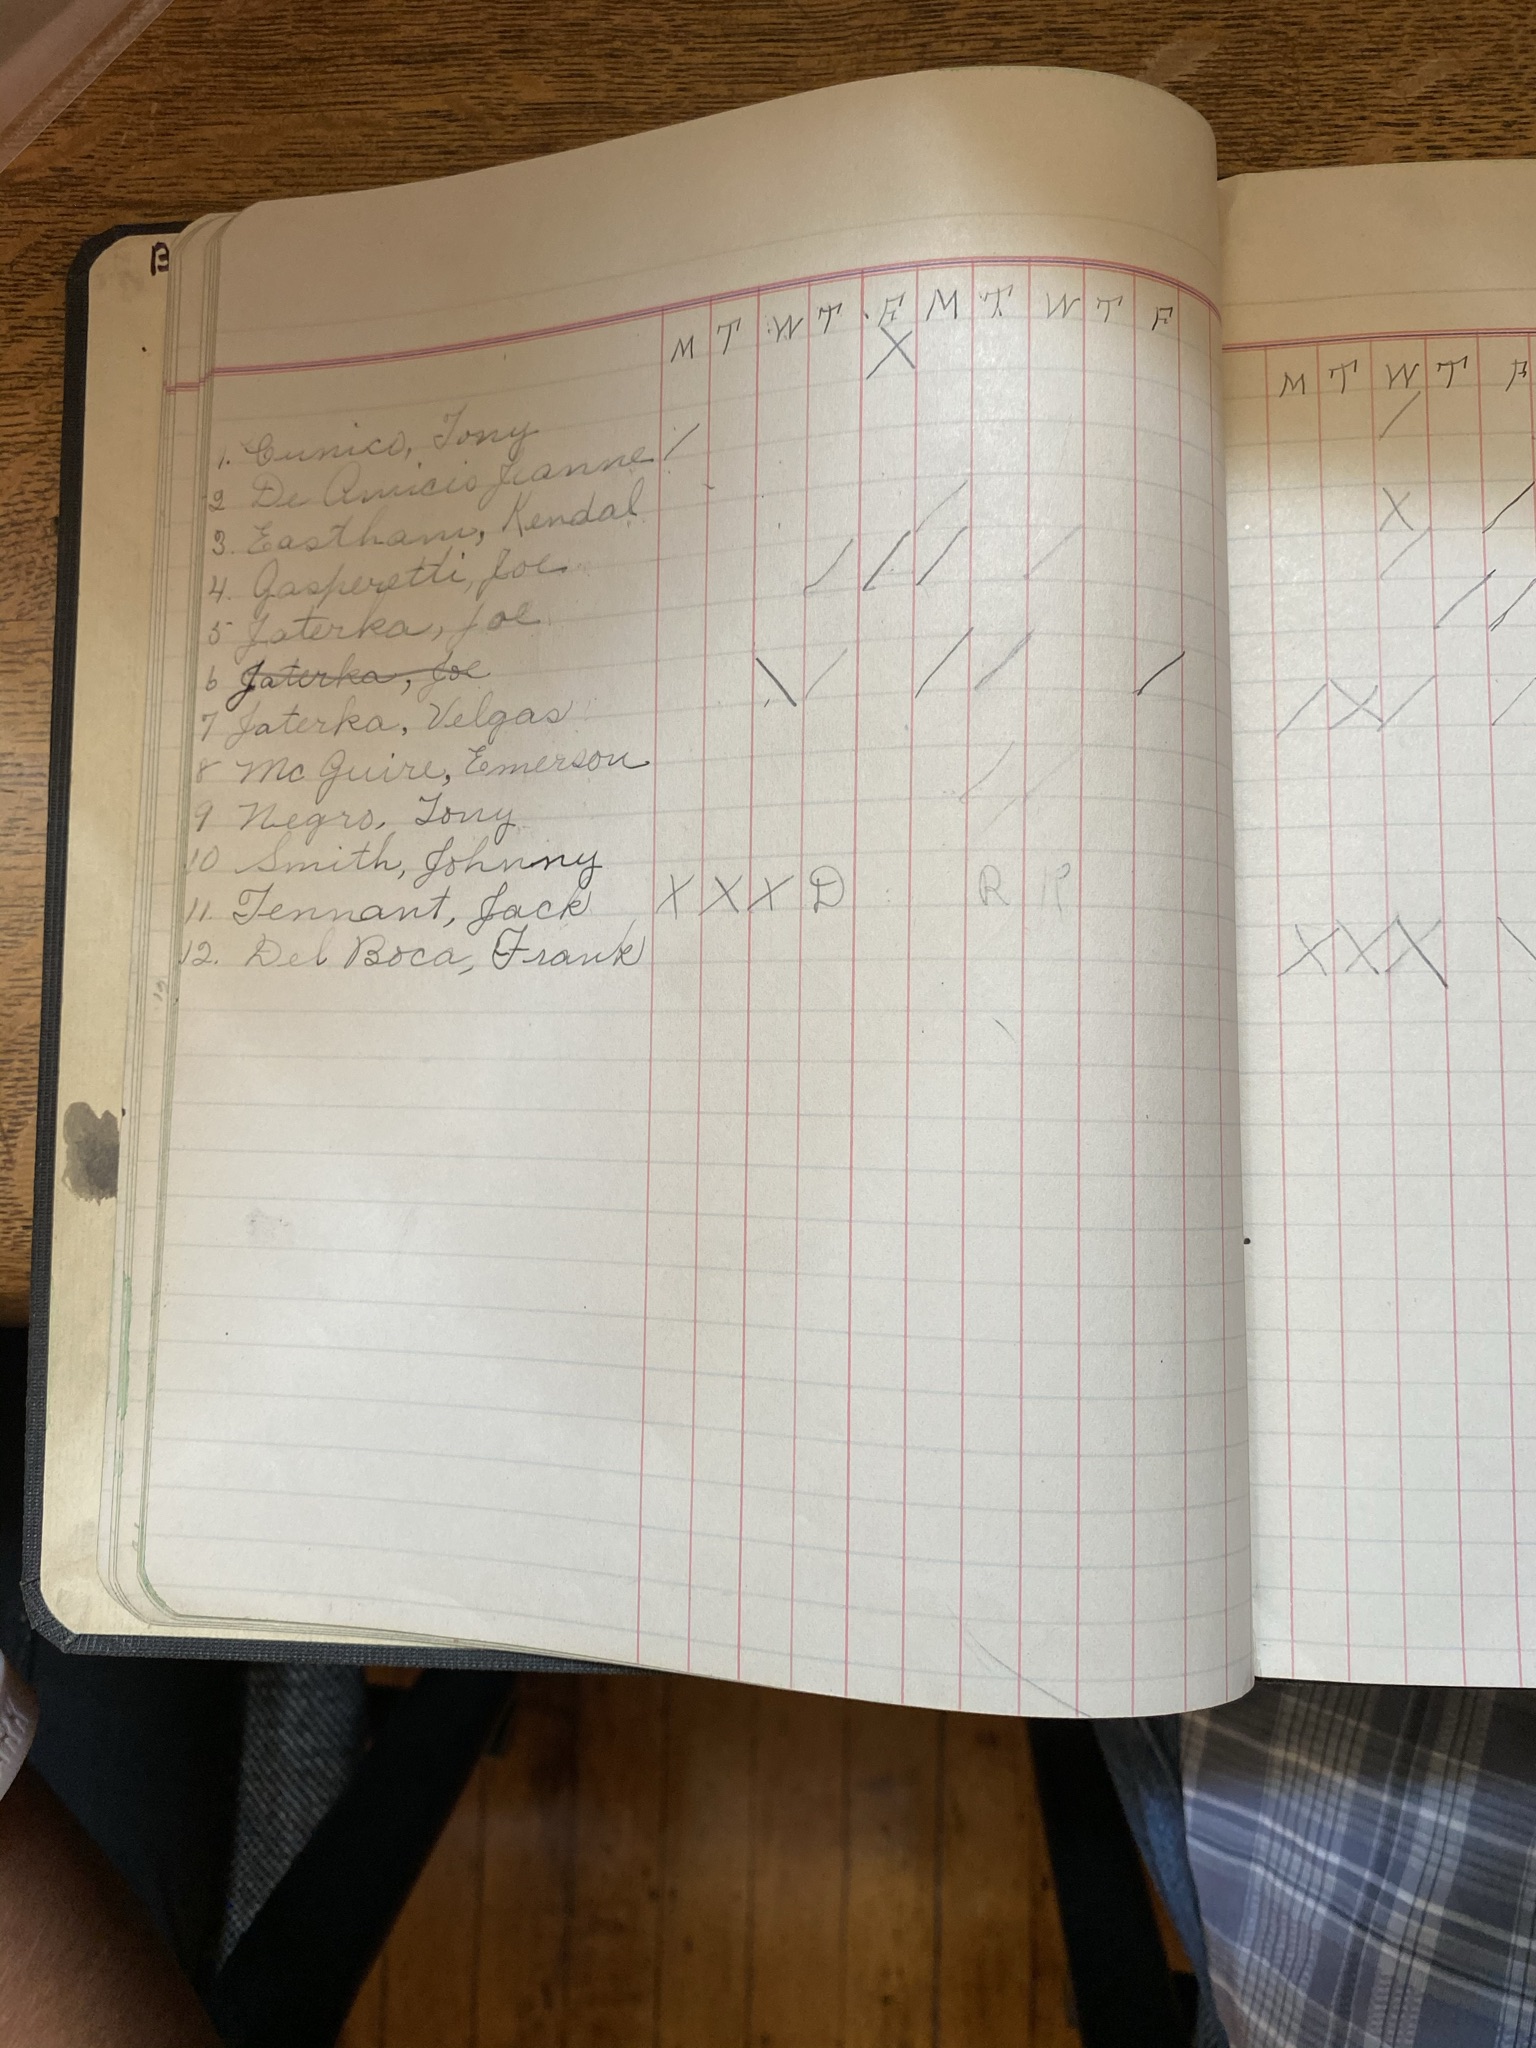 B
M T W T F M T W T F
M T W T F
X
1. Cunico, Tony /
/
2 De Amicis Jeanne
3. Eastham, Kendal /
X /
4. Gasperetti, Joe / / / /
/
5 Jaterka, Joe
/ /
6 Jaterka, Joe \ / / / /
7 Jaterka, Velgas
/ X / /
8 McGuire, Emerson / /
9 Negro, Tony
10 Smith, Johnny
11. Tennant, Jack X X X D R R
12. Del Boca, Frank
X X X \